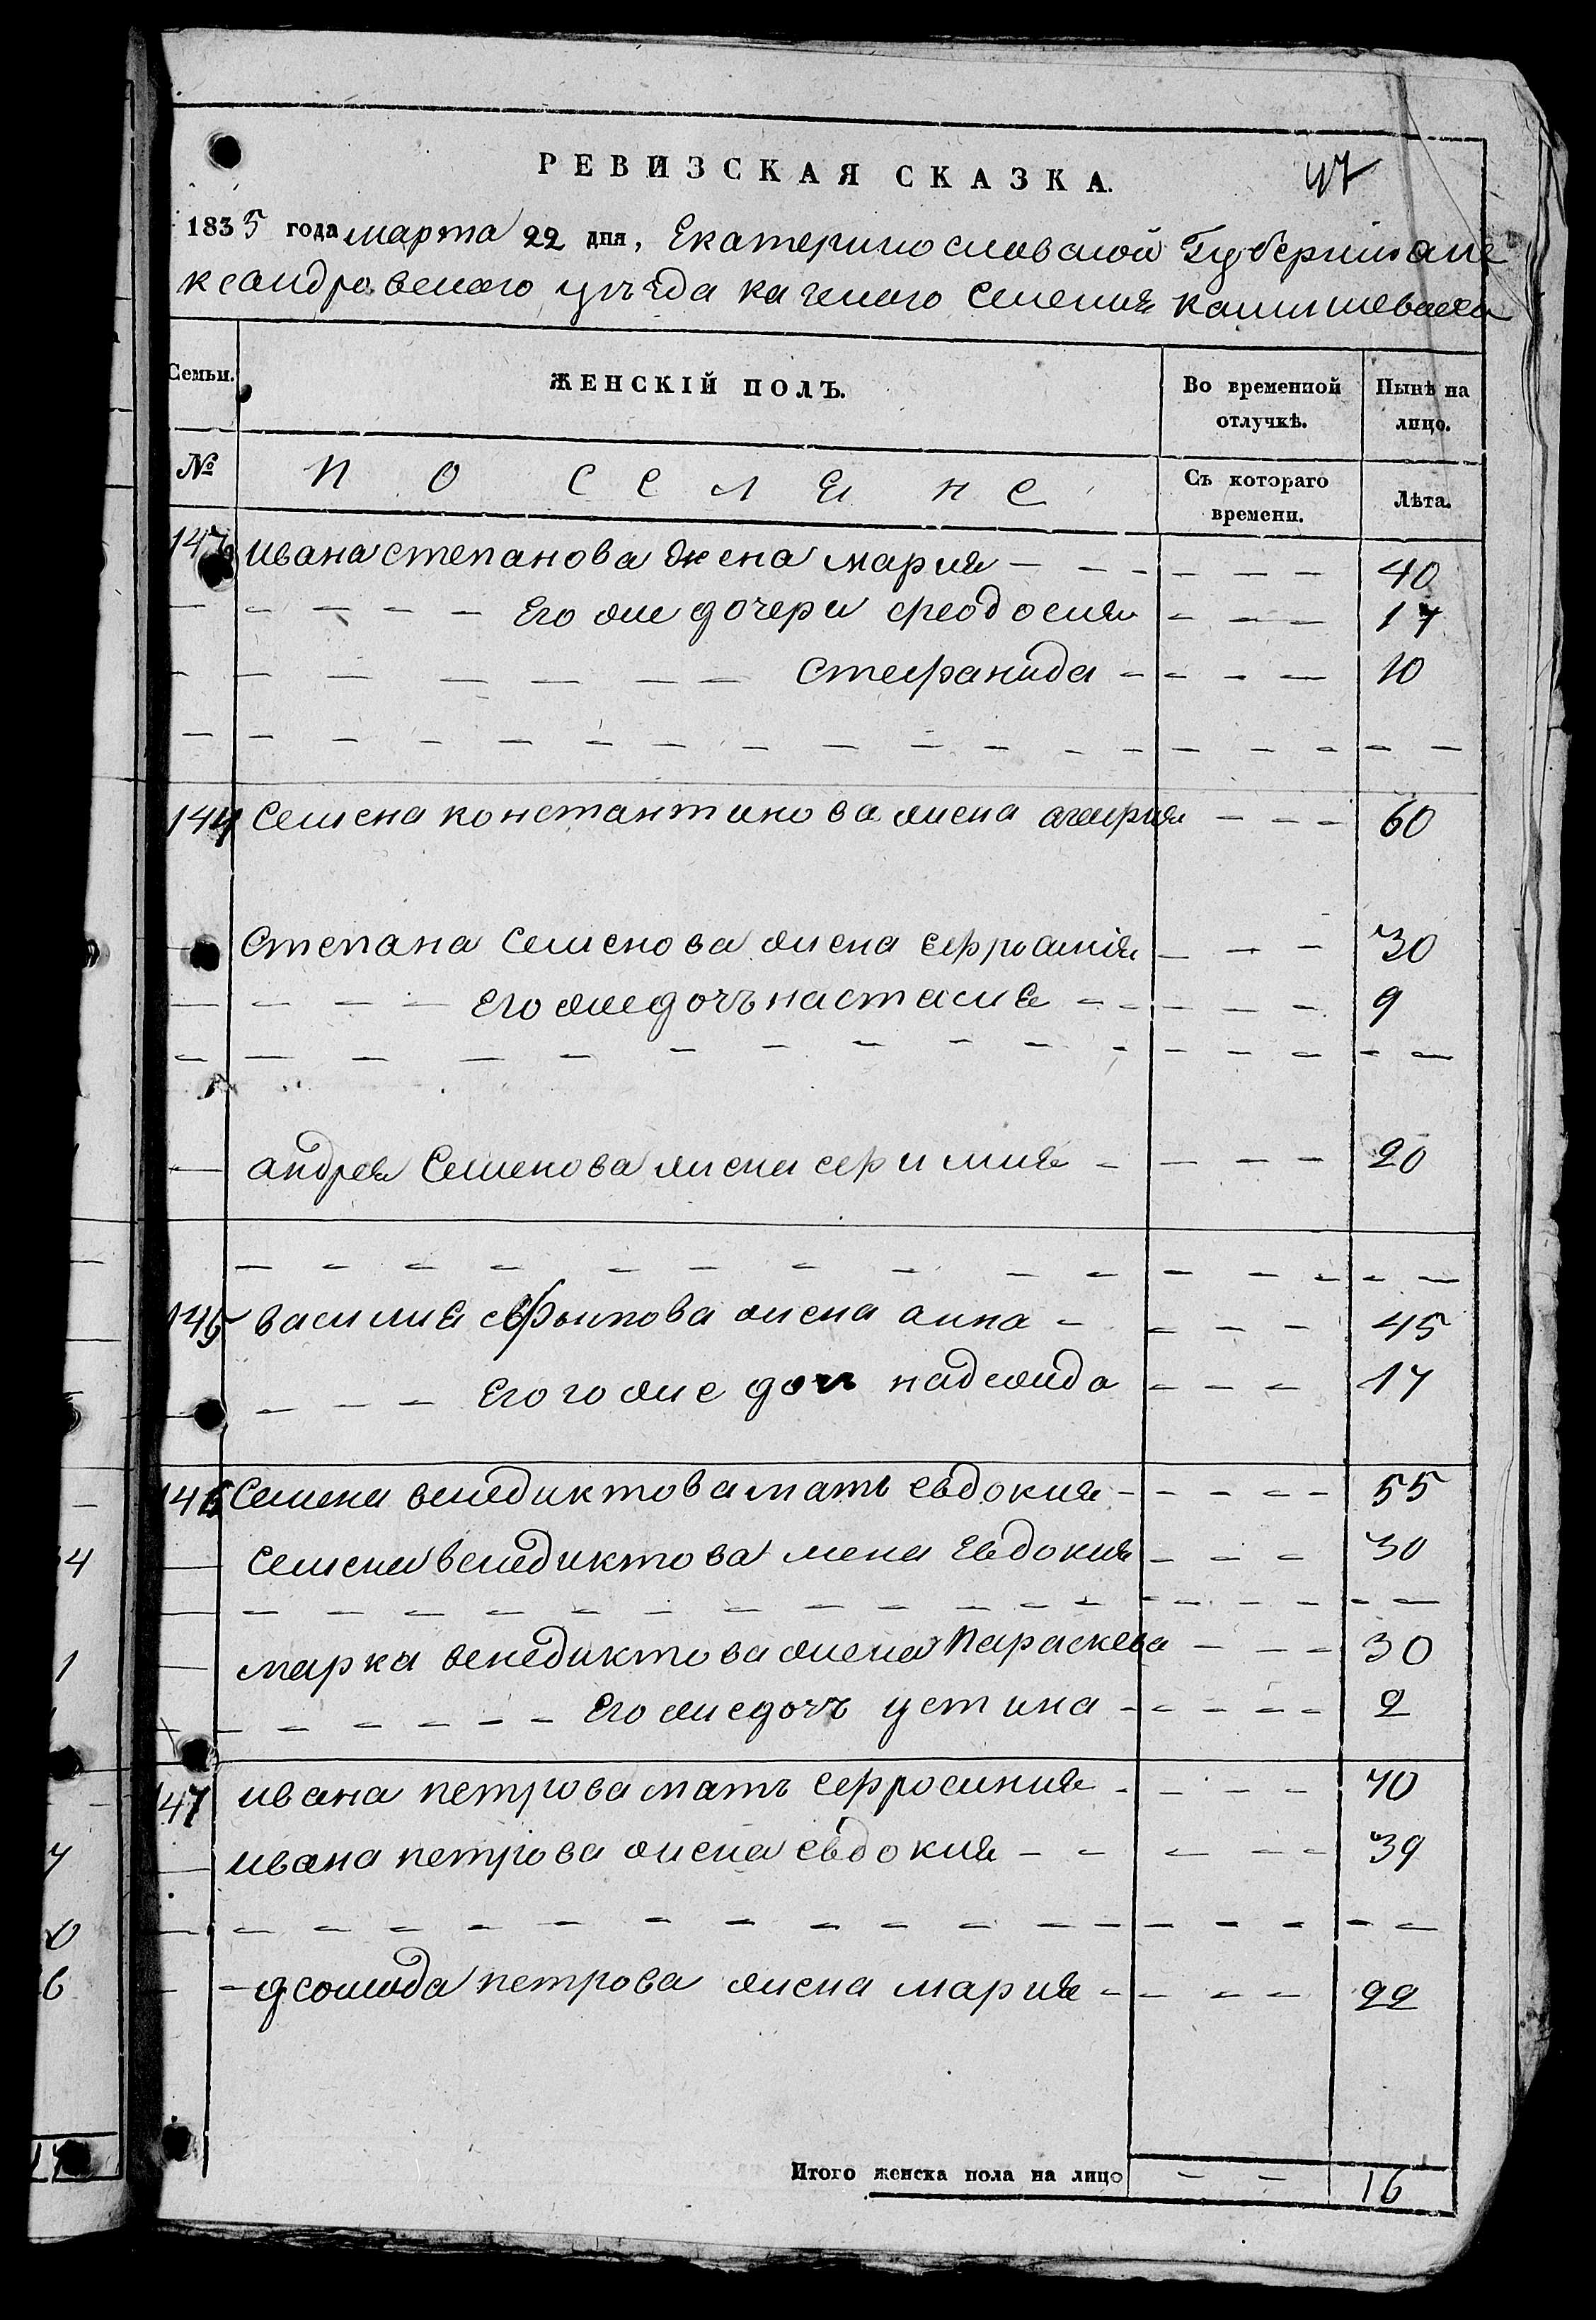 РЕВИЗСКАЯ СКАЗКА.
47
1835 года марта 22 дня, Екатеринославской Губернии але
ксандровского уъзда казенного Селения камишевахи
Семьи.
ЖЕНСКІЙ ПОЛЪ.
Во временной отлучкѣ.
Нынѣ на лицо.
№
поселяне
Съ котораго времени.
Лѣта.
143 ивана степанова жена мария - - - 40
Его же дочери феодосия - - - 17
Стефанида - - - 10
144 Семена константинова жена - - - 60
Степана Семенова жена - - - 30
его же дочъ настасия - - - 9
андрея Семенова жена ефимия - - - 20
145 василия жена анна - - - 45
Его же доч надежда - - - 17
146 Семена венедиктова мать евдокия - - - 55
Семена венедиктова жена Евдокия - - - 30
марка венедиктова жена Параскева - - - 30
Его же дочъ устина - - - 2
147 ивана петрова мать ефросиния - - - 70
ивана петрова жена евдокия - - - 39
петрова жена мария - - - 22
Итого женска пола на лицо - - 16